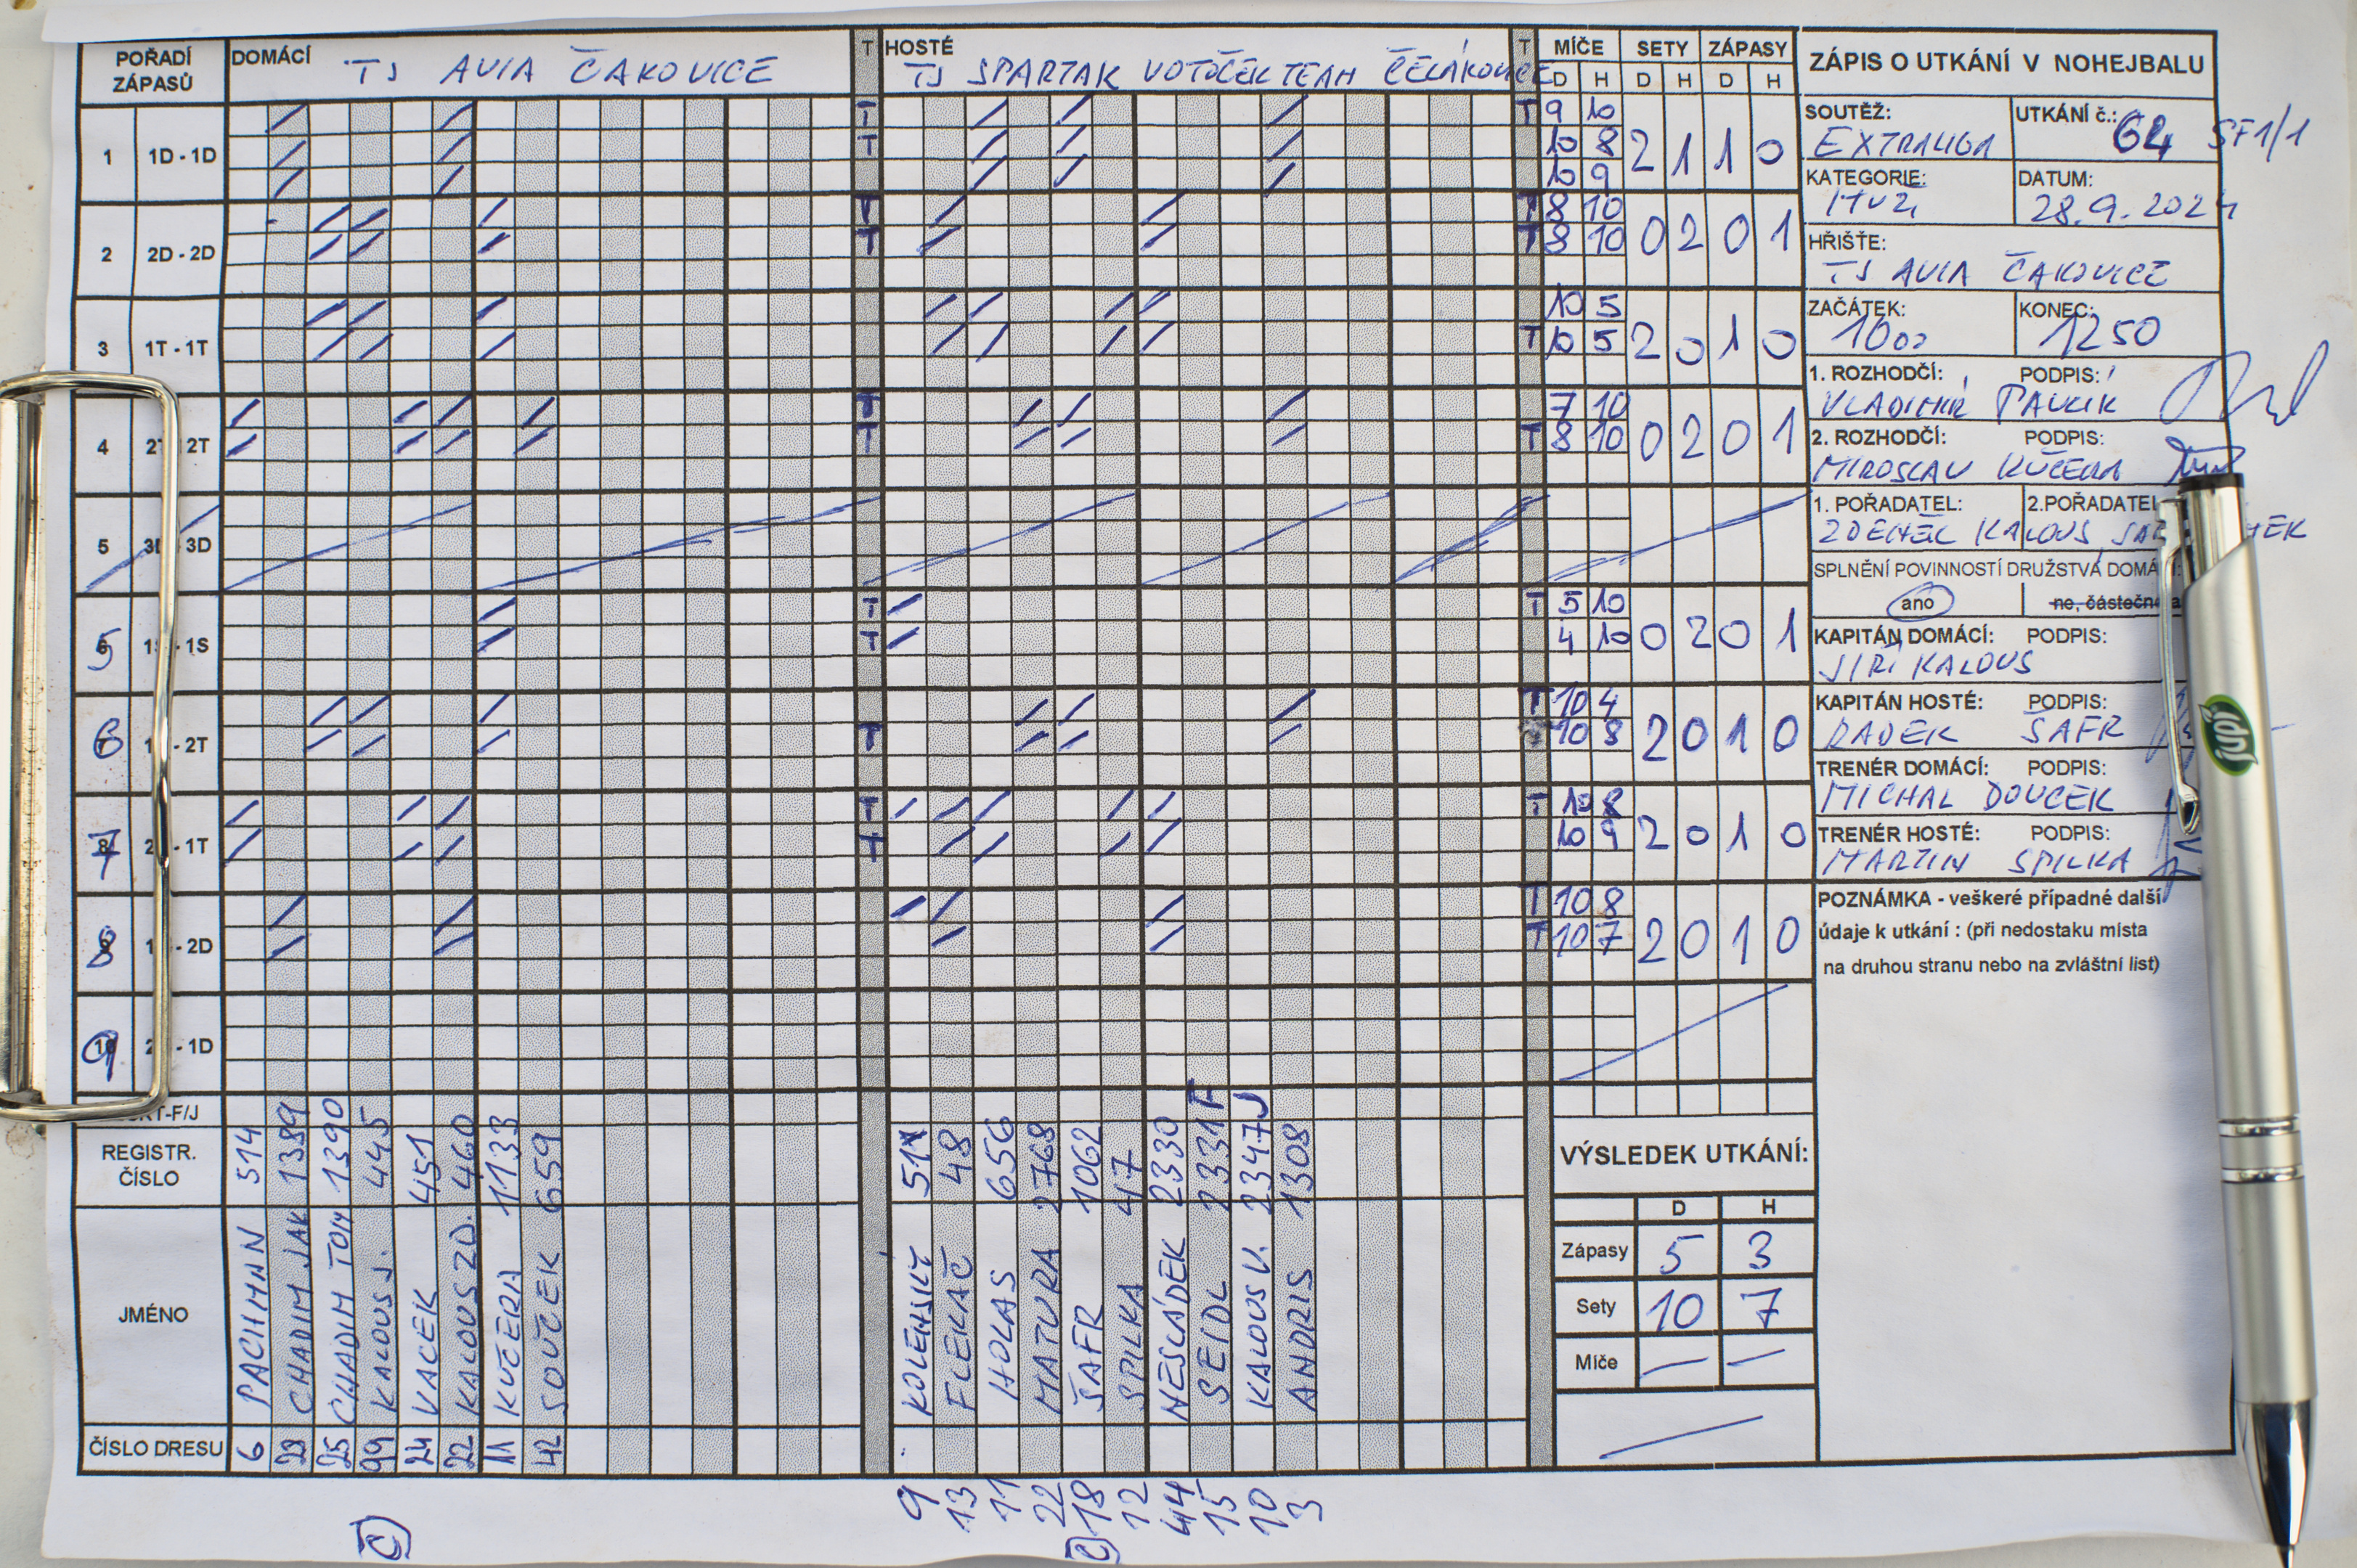 POŘADÍ ZÁPASŮ
DOMÁCÍ TJ AVIA ČAKOVICE
T
HOSTÉ TJ SPARTAK VOTOČEK TEAM ČELÁKOVICE
T
MÍČE SETY ZÁPASY
D H D H D H
1 1D - 1D T T 9 10
T 10 8 2 1 1 0
10 9
2 2D - 2D T T 8 10
T T 8 10 0 2 0 1
3 1T - 1T 10 5
T 10 5 2 0 1 0
4 2T 2T T 7 10
T T 8 10 0 2 0 1
5 3D 3D
5 - 1S T T 5 10
T 4 10 0 2 0 1
6 - 2T T 10 4
T 10 8 2 0 1 0
7 - 1T T T 10 8
T 10 9 2 0 1 0
8 - 2D T 10 8
T 10 7 2 0 1 0
9 - 1D
T-F/J F J
REGISTR. ČÍSLO 514 1389 1390 445 451 460 1133 659
48 656 2768 1062 47 2330 2331 2347 1308
JMÉNO PACHMAN CHADIM JAK CHADIM TOM KALOUS J. VACEK KALOUS ZD. KUČERA SOUČEK
KOLENSKÝ FLEKAČ HOLAS MATURA ŠAFR SPILKA NESLÁDEK SEIDL KALOUS V. ANDRIS
ČÍSLO DRESU 6 29 25 99 24 22 11 42
9 13 11 22 18 12 44 15 10 3
C C
VÝSLEDEK UTKÁNÍ:
D H
Zápasy 5 3
Sety 10 7
Míče — —
ZÁPIS O UTKÁNÍ V NOHEJBALU
SOUTĚŽ: EXTRALIGA
UTKÁNÍ č.: 64 SF1/1
KATEGORIE: MUŽI
DATUM: 28.9.2024
HŘIŠTE:
TJ AVIA ČAKOVICE
ZAČÁTEK: 1000
KONEC: 1250
1. ROZHODČÍ: PODPIS:
VLADIMÍR PAVLÍK
2. ROZHODČÍ: PODPIS:
MIROSLAV KUČERA
1. POŘADATEL: 2.POŘADATEL
ZDENĚK KALOUS
SPLNĚNÍ POVINNOSTÍ DRUŽSTVA DOMÁ
ano ne, částečně
KAPITÁN DOMÁCÍ: PODPIS:
JIŘÍ KALOUS
KAPITÁN HOSTÉ: PODPIS:
RADEK ŠAFR
TRENÉR DOMÁCÍ: PODPIS:
MICHAL DOUCEK
TRENÉR HOSTÉ: PODPIS:
MARTIN SPILKA
POZNÁMKA - veškeré případné další
údaje k utkání : (při nedostaku místa
na druhou stranu nebo na zvláštní list)
jupí